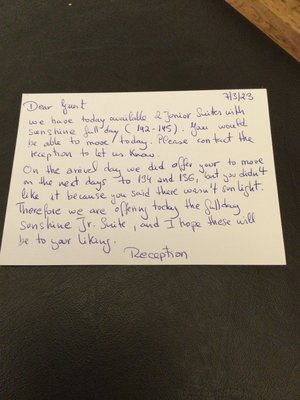 7/3/23
Dear Guest
we have today available 2 Junior Suites with
sunshine full day (142-145). You would
be able to move today. Please contact the
reception to let us know.
On the arrival day we did offer your to move
on the next days to 134 and 136, but you didn't
like it because you said there wasn't sun light.
Therefore we are offering today the fullday
sunshine Jr. Suite, and I hope these will
be to your liking.
Reception